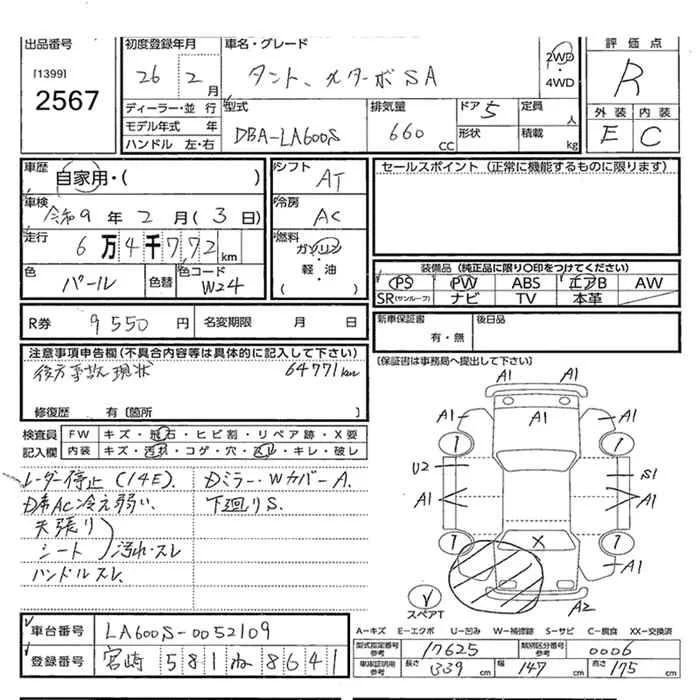 出品番号
[1399]
2567
初度登録年月
26 2月
車名・グレード
タント、メターボSA
2WD
・
4WD
評価点
R
外装 内装
E C
ディーラー・並行
モデル年式 年
ハンドル 左・右
型式
DBA-LA600S
排気量
660 CC
ドア 5
形状
定員 人
積載 kg
車歴
自家用・( )
車検
令和9年2月(3日)
走行
6万4千772km
色
パール
色替
色コード
W24
シフト
AT
冷房
AC
燃料
ガソリン
軽・油
セールスポイント(正常に機能するものに限ります)
装備品(純正品に限り○印をつけてください)
PS PW ABS エアB AW
SR(サンルーフ) ナビ TV 本革
R券 9550円 名変期限 月 日
新車保証書
有・無
後日品
注意事項申告欄(不具合内容等は具体的に記入して下さい)
後方事故現状 64771km
修復歴 有〔箇所 〕
〔保証書は事務局へ提出して下さい〕
検査員 FW キズ・飛石・ヒビ割・リペア跡・X要
記入欄 内装 キズ・汚れ・コゲ・穴・スレ・キレ・破レ
レーダー停止(14E).
D席AC冷え弱い.
天張り
シート
汚れ・スレ
ハンドルスレ.
Dミラー・WカバーA.
下廻りS.
A1
A1 A1 A1
1 1
U2 S1
A1 A1
1 1
X
A1
A2
Y
スペアT
A−キズ E−エクボ U−凹み W−補修跡 S−サビ C−腐食 XX−交換済
車台番号 LA600S-0052109
登録番号 宮崎 581 ね 8641
型式指定番号参考 17625 類別区分番号参考 0006
車庫証明用参考 長さ 339cm 幅 147cm 高さ 175cm